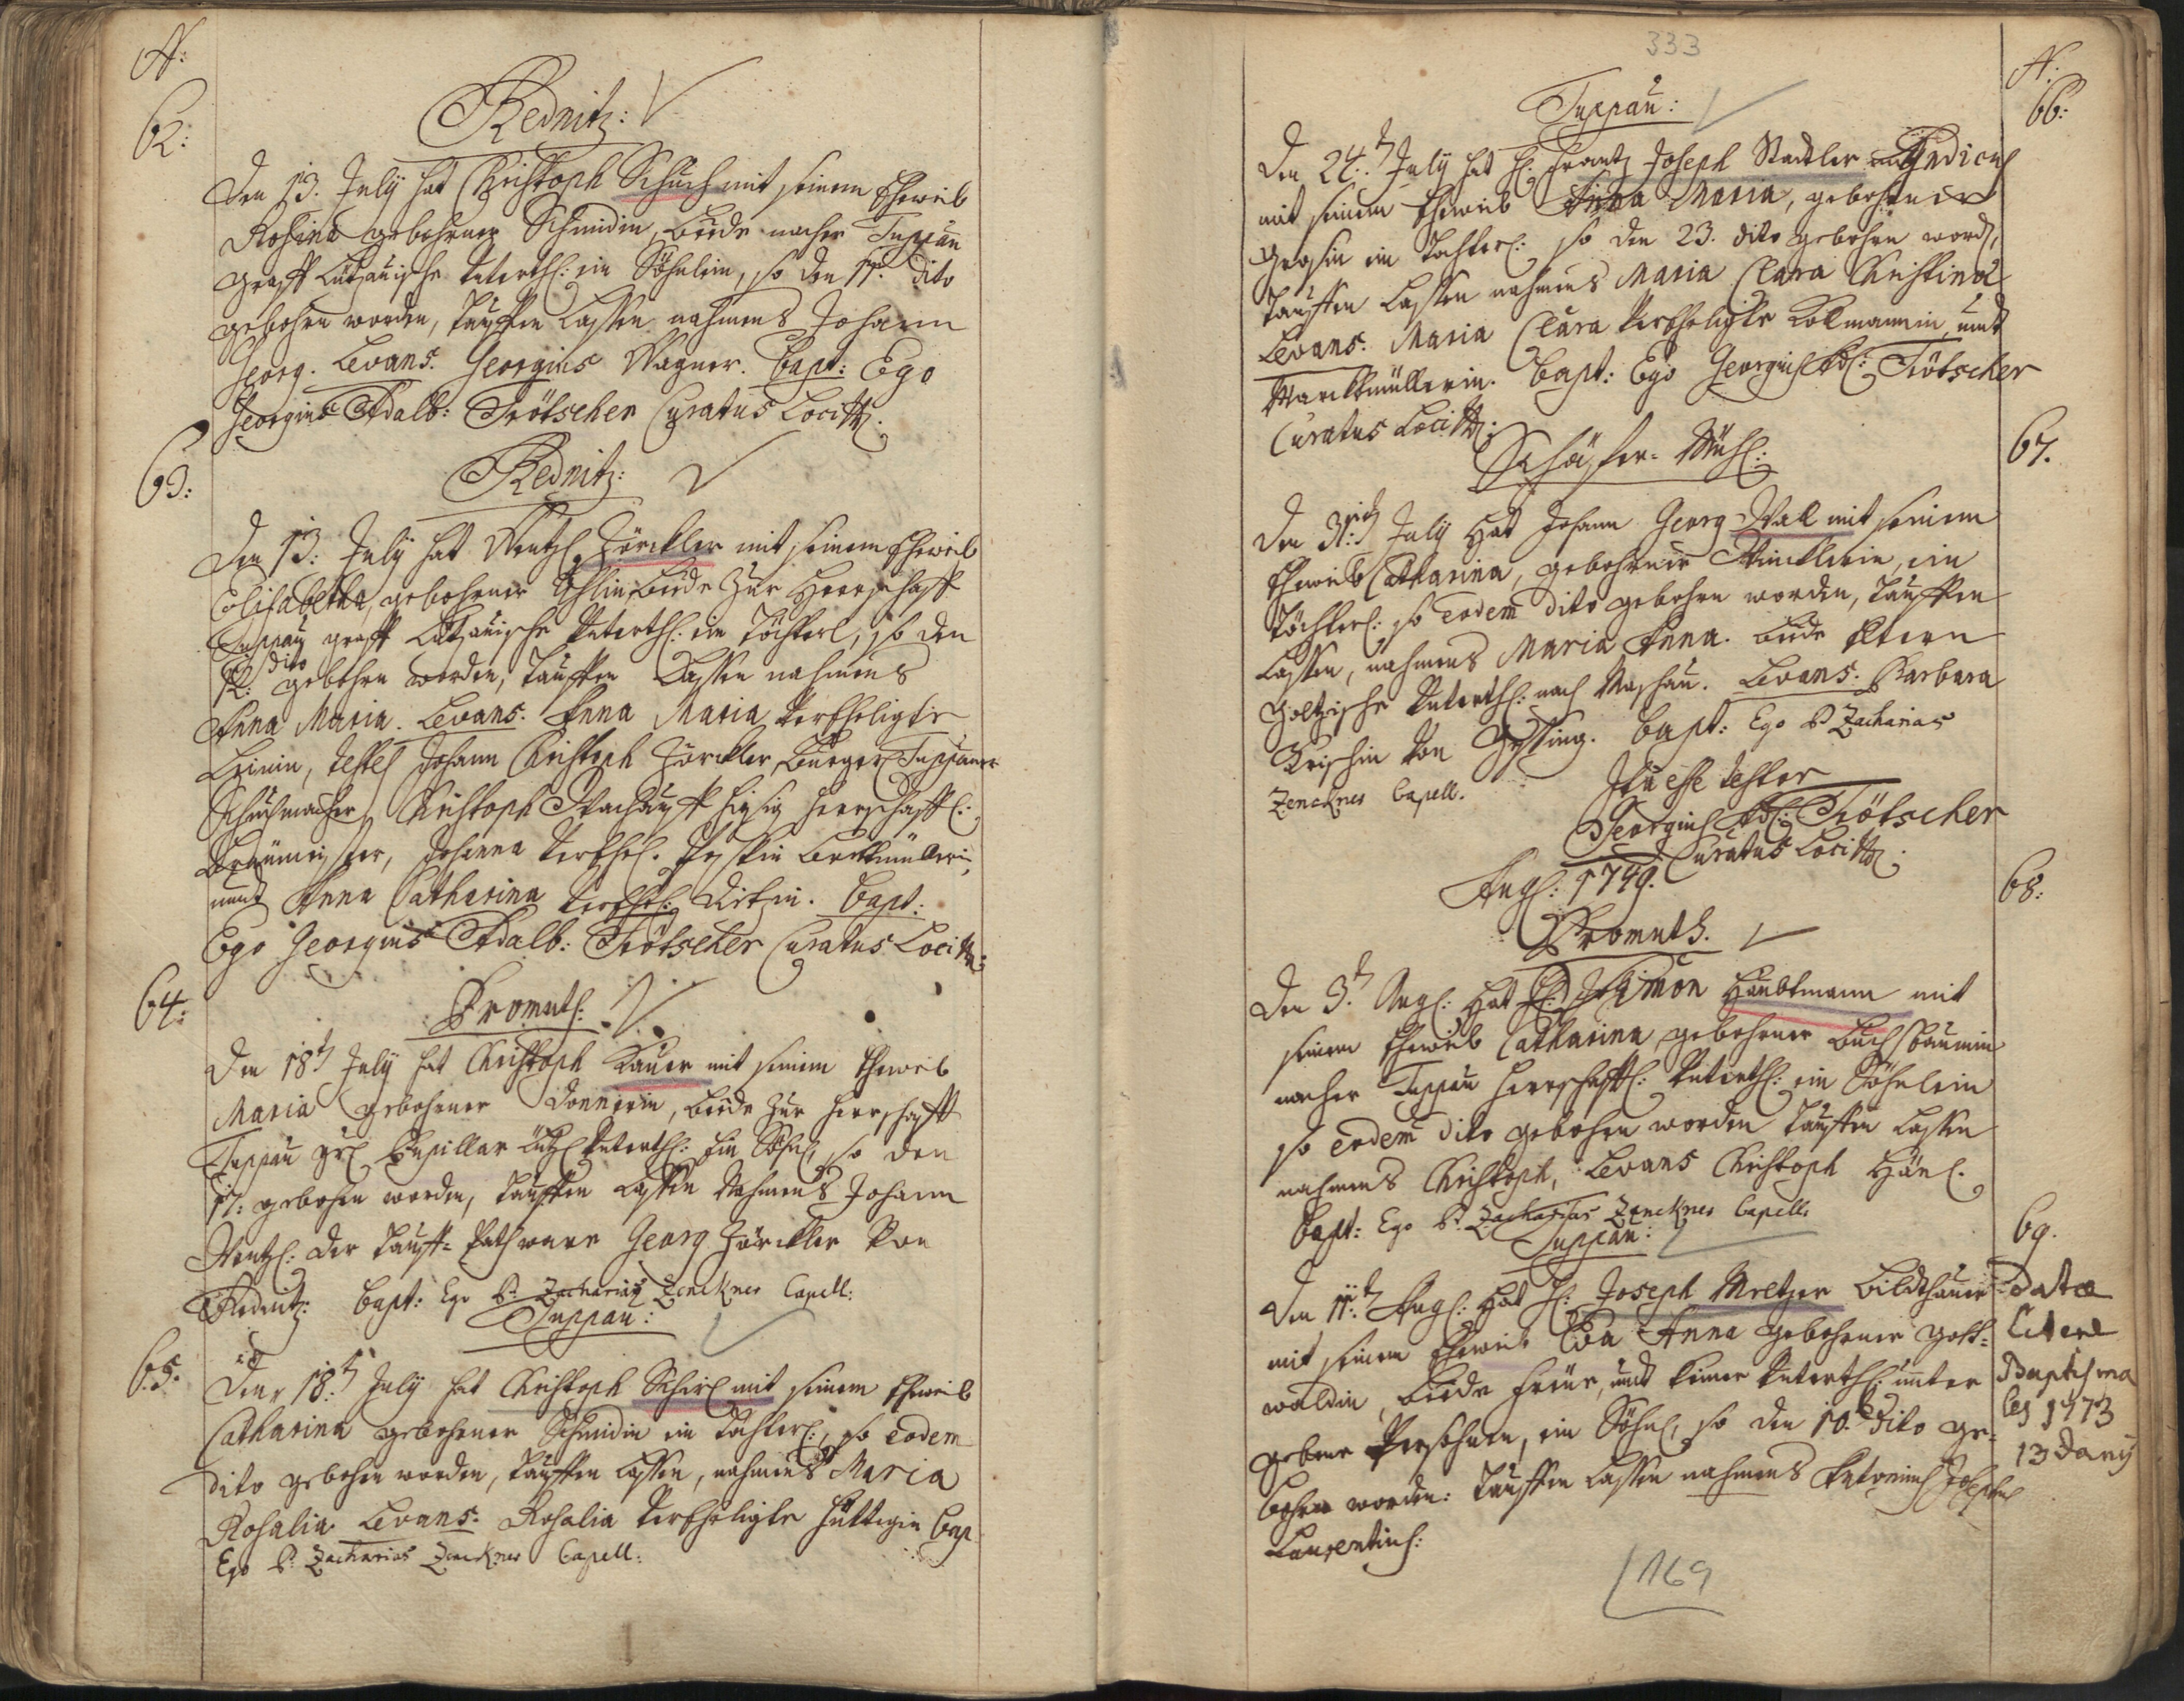 N:
62:
Rednitz:
Den 13. July hat Christoph Schuch mit seinem Eheweib
Rosina gebohrner Schmidin, beede nacher Duppau
Graff Lützauische Unterth: ein Söhnlein, so den 11. dito
gebohrn worden, tauffen lassen nahmens Johann
Georg. Levans. Georgius Wagner. Bapt: Ego
Georgius Adalb: Trötscher Curatus Loci
63:
Rednitz:
Den 13: July hat Wentzl Zörckler mit seinem Eheweib
Elisabetha, gebohrner beede zur Herrschafft
Duppau graff Lützauische Unterth: ein Töchterl, so den
12: dito gebohrn worden, tauffen lassen nahmens
Anna Maria. Levans. Anna Maria Vereheligte
testes Johann Christoph Zörckler, Burger Duppauer
Schuhmacher, Christoph hiesig herrschafftl:
Johanna Verehel.
und Anna Catharina Verehel: Bapt:
Ego Georgius Adalb: Trötscher Curatus Loci
64:
Promuth:
Den 18t July hat Christoph Lauer mit seinem Eheweib
Maria gebohrner Donnerin, beede zur Herrschafft
Duppau Pupillar Unterth: ein Söhnl, so den
17: gebohrn worden, tauffen lassen Nahmens Johann
Wentzl: der Tauff=Path ware Georg Zörckler von
Rednitz: Bapt: Ego P: Zacharias Zenckner Capell:
Duppau:
65:
Den 18t July hat Christoph Schirl mit seinem Eheweib
Catharina gebohrner Schmidin ein Töchterl: so eodem
dito gebohrn worden, tauffen lassen, nahmens Maria
Rosalia Levans: Rosalia Verehligte Hüttigin Bap
Ego P: Zacharias Zenckner Capell:
333
N:
66:
Duppau:
Den 24t July hat H: Frantz Joseph Stadler Syndicus
mit seinem Eheweib Anna Maria, gebohrner
ein Töchterl: so den 23. dito gebohrn word,
tauffen lassen nahmens Maria Clara Christina
Levans: Maria Clara Verehligte Kollmannin, und
Marckmüllerin. Bapt: Ego Georgius Ad: Trötscher
Curatus Loci
67.
Schäffer=Mühl:
Den 31. July Hat Johann Georg Wall mit seinem
Eheweib Catharina, gebohrner Wincklerin, ein
Töchterl: so eodem dito gebohrn worden, tauffen
lassen, nahmens Maria Anna. beede Eltern
Goltzische Unterth: nach Maschau. Levans. Barbara
von Bapt: Ego P Zacharias
Zenckner Capell.
Ita est tester
Georgius Ad: Trötscher
Curatus Loci
Aug: 1749.
68:
Promuth.
Den 3t Aug: Hat Simon Haubtmann mit
seinem Eheweib Catharina gebohrner Buchsbaumin
nacher Duppau Herrschafftl: Unterth: ein Söhnlein
so eodem dito gebohrn worden tauffen lassen
nahmens Christoph, Levans Christoph Hänl.
Bapt: Ego P. Zacharias Zenckner Capell:
Duppau:
69.
Den 11t Aug: Hat H: Joseph Mreltzer Bildthauer
mit seinem Eheweib Eva Anna gebohrner Gott=
waldin, beede freue, undt keiner Unterth: unter
gebene Persohnen, ein Söhnl, so den 10. dito ge=
bohrn worden: tauffen lassen nahmens Antonius Josephus
Laurentius:
Datae
Literae
Baptisma
les 1773
13 Janÿ
169